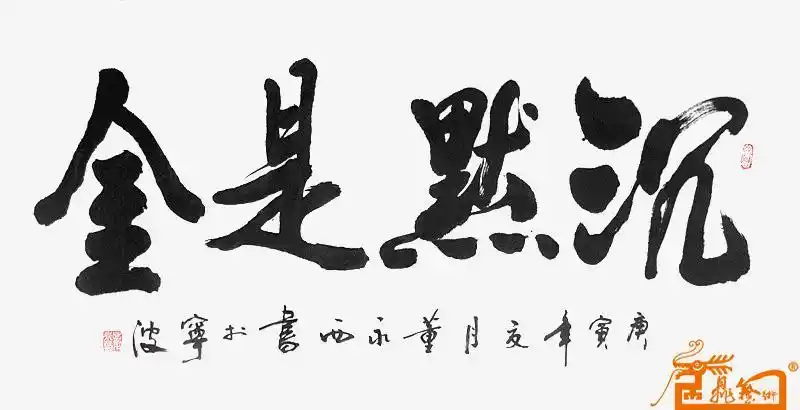 沉默是金
庚寅年夏月董永西書於寧波